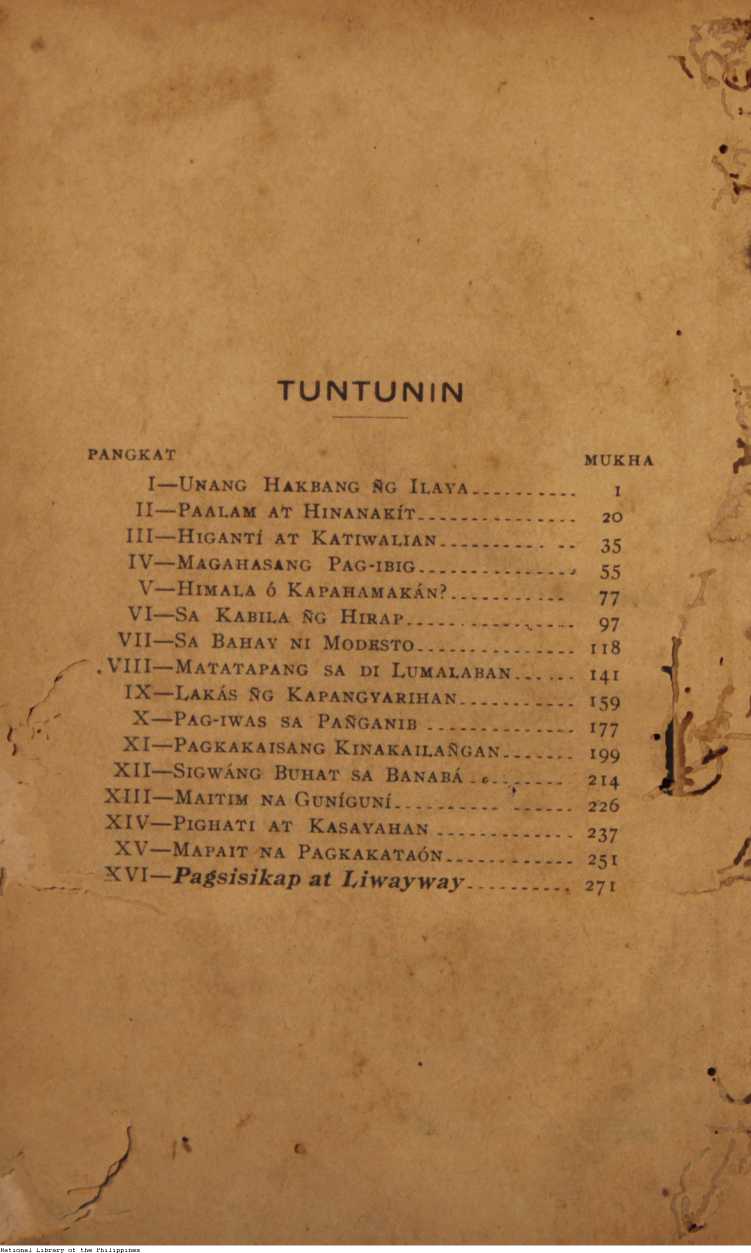 TUNTUNIN
PANGKAT MUKHA
I—UNANG HAKBANG ÑG ILAYA.......... 1
II—PAALAM AT HINANAKÍT............... 20
III—HIGANTÍ AT KATIWALIAN............ 35
IV—MAGAHASANG PAG-IBIG............... 55
V—HIMALA Ó KAPAHAMAKÁN?........... 77
VI—SA KABILA ÑG HIRAP................ 97
VII—SA BAHAY NI MODESTO............... 118
VIII—MATATAPANG SA DI LUMALABAN...... 141
IX—LAKÁS ÑG KAPANGYARIHAN........... 159
X—PAG-IWAS SA PAÑGANIB .............. 177
XI—PAGKAKAISANG KINAKAILAÑGAN....... 199
XII—SIGWÁNG BUHAT SA BANABÁ......... 214
XIII—MAITIM NA GUNÍGUNÍ................ 226
XIV—PIGHATI AT KASAYAHAN ............. 237
XV—MAPAIT NA PAGKAKATAÓN............ 251
XVI—Pagsisikap at Liwayway.......... 271
National Library of the Philippines